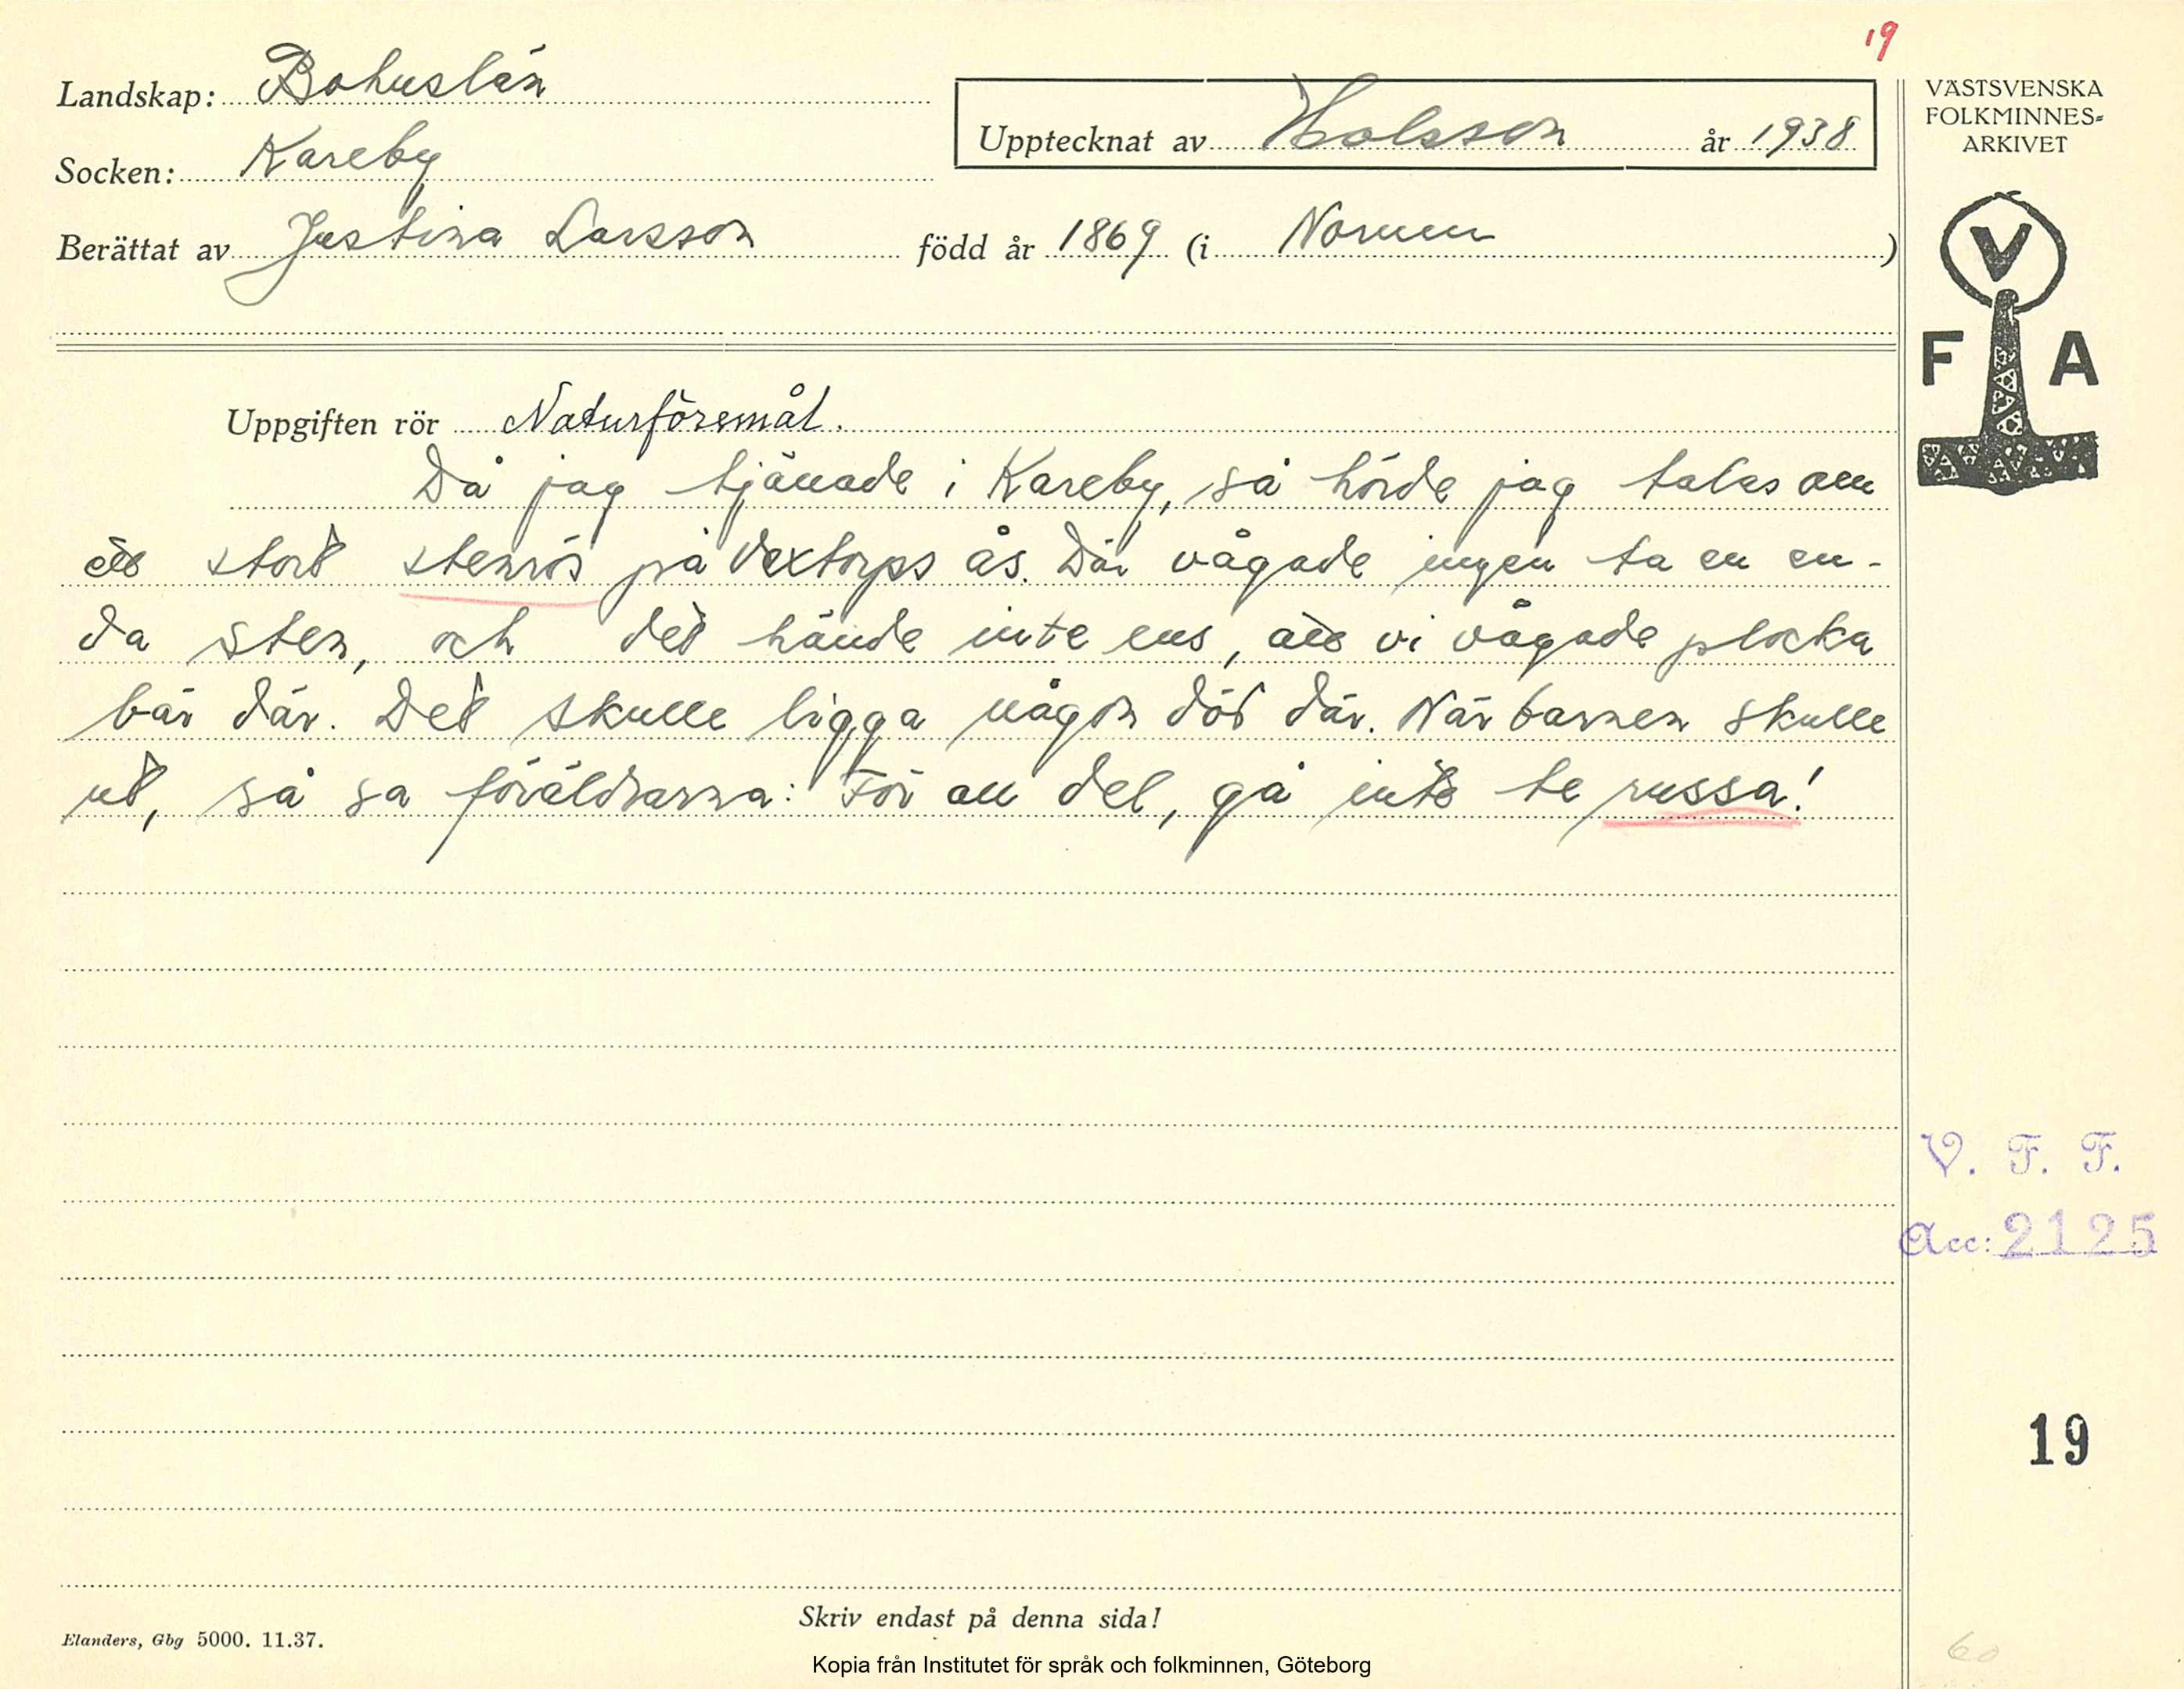 19
Landskap: Bohuslän
Socken: Kareby
Upptecknat av Holsson år 1938
Berättat av Justina Larsson född år 1869 (i Norum)
VÄSTSVENSKA
FOLKMINNES-
ARKIVET
V
F A
Uppgiften rör Naturföremål.
Då jag tjänade i Kareby, så hörde jag talas om
ett stort stenrös på Vextorps ås. Där vågade ingen ta en en-
da sten, och det hände inte ens, att vi vågade plocka
bär där. Det skulle ligga någon död där. När barnen skulle
ut, så sa föräldrarna: För all del, gå inte te russa!
V. F. F.
Acc: 2125
19
Skriv endast på denna sida!
Elanders, Gbg 5000. 11.37.
Kopia från Institutet för språk och folkminnen, Göteborg
60